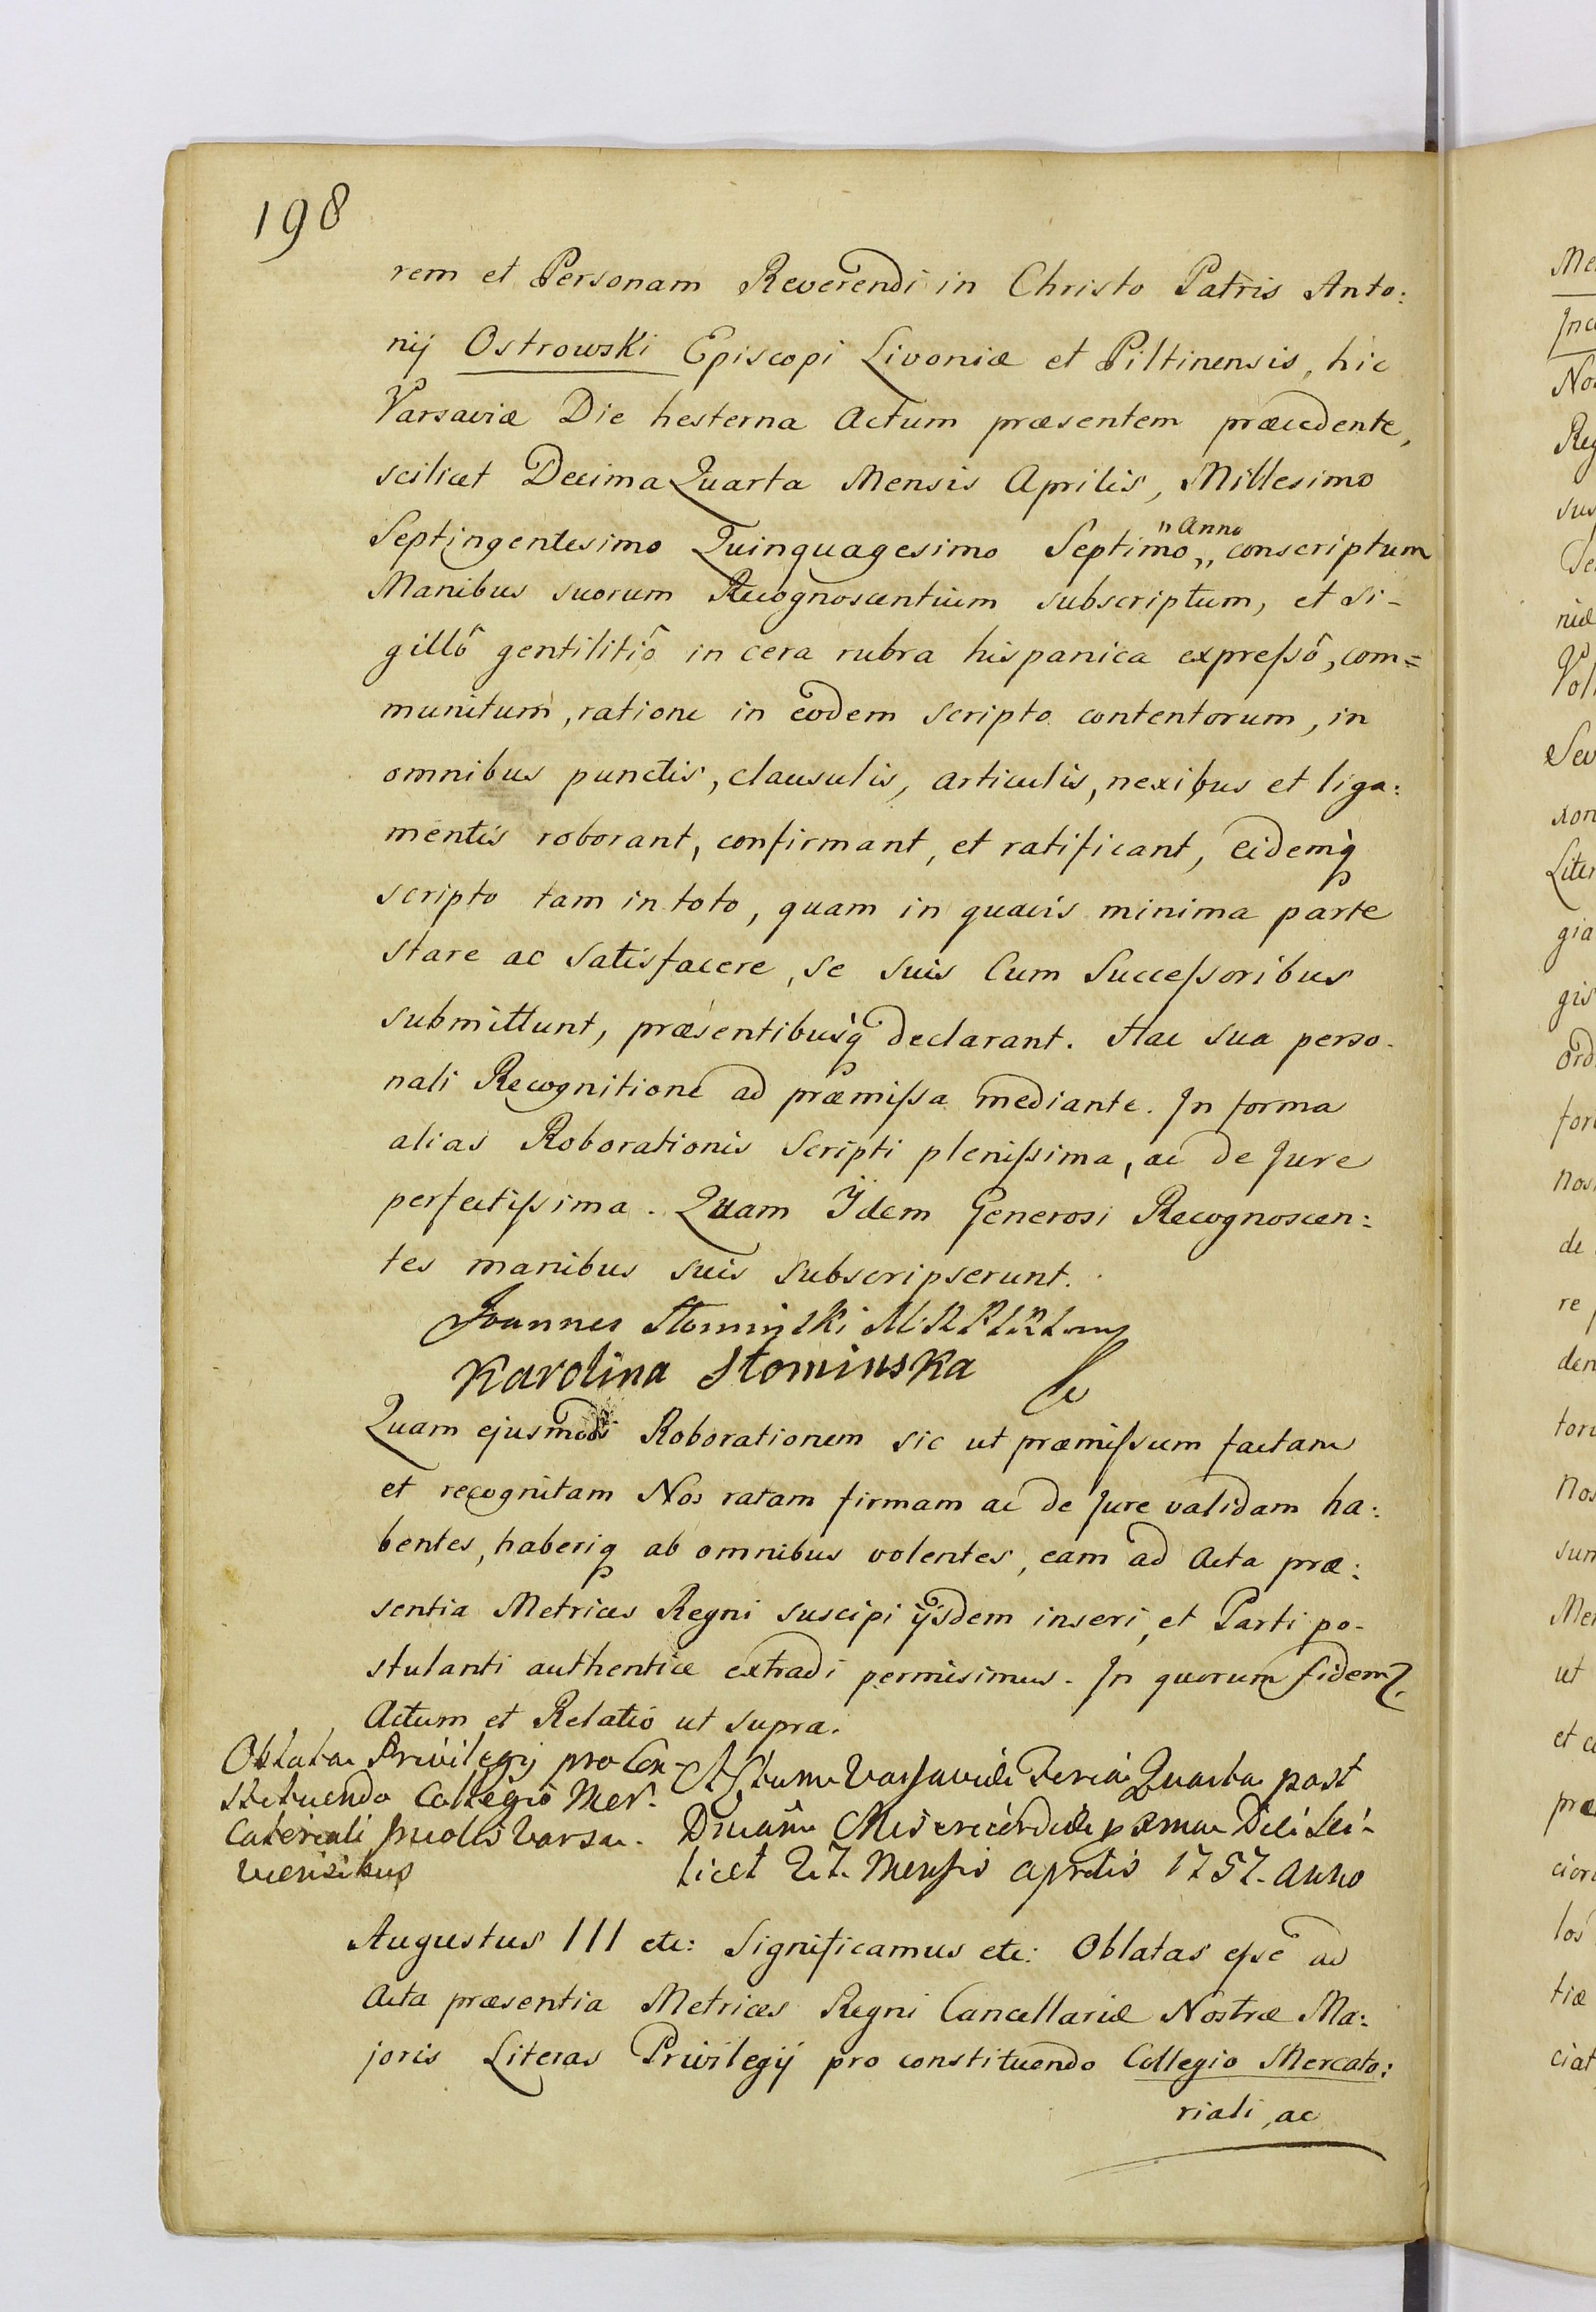 198
rem et Personam Reverendi in Christo Patris Anto:
nij Ostrowski Episcopi Livoniæ et Piltinensis, hic
Varsaviæ Die hesterna Actum præsentem præcedente,
scilicet Decima Quarta Mensis Aprilis, Millesimo
Septingentesimo Quinquagesimo Septimo „ Anno „ conscriptum
Manibus suorum Recognoscentium subscriptum, et Si-
gillô gentilitiô in cera rubra hispanica expreſsô, com=
munitum, ratione in eodem Scripto contentorum, in
omnibus punctis, clausulis, articulis, nexibus et liga:
mentis roborant, confirmant, et ratificant, eidemq̀
scripto tam in toto, quam in quavis minima parte
stare ac Satisfacere, se suis Cum Succeſsoribus
submittunt, præsentibusq̀ declarant. Hac sua perso-
nali Recognitione ad præmiſsa mediante. In forma
alias Roborationis Scripti pleniſsima, ac de Jure
perfectiſsima. Quam Ijdem Generosi Recognoscen:
tes manibus suis subscripserunt.
Joannes Słominski
Karolina Słominska
Quam ejusmodi Roborationem sic ut præmiſsum factam
et recognitam Nos ratam firmam ac de Jure validam ha:
bentes, haberiq ab omnibus volentes, eam ad Acta præ:
sentia Metrices Regni suscipi ijsdem inseri, et Parti po-
stulanti authentice extradi permisimus. In quorum fidem
Actum et Relatio ut supra.
Oblata Privilegij pro Con-
stituendo Collegio Mer-
catoriali Varsa-
viensibus
Actum Varsaviæ Feria Quarta post
Dnicam Misericordiæ Die Sci-
licet 27. Mensis Aprilis 1757. Anno
Augustus III etc: Significamus etc: Oblatas eſse ad
Acta præsentia Metrices Regni Cancellariæ Nostræ Ma:
joris Literas Privilegij pro constituendo Collegio Mercato:
riali, ac